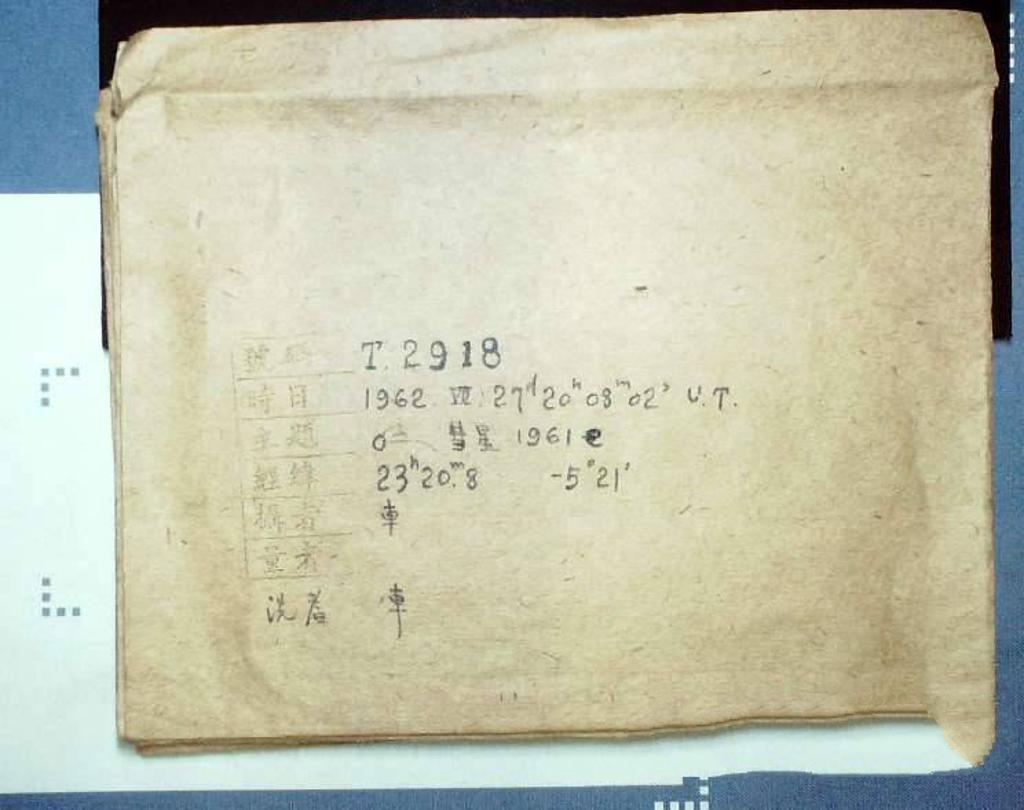 號 T. 2918
時日 1962. Ⅶ. 27ᵈ 20ʰ 08ᵐ 02ˢ U.T.
主題 彗星 1961 e
經緯 23ʰ 20ᵐ.8 -5° 21'
攝者 車
量者
洗者 車